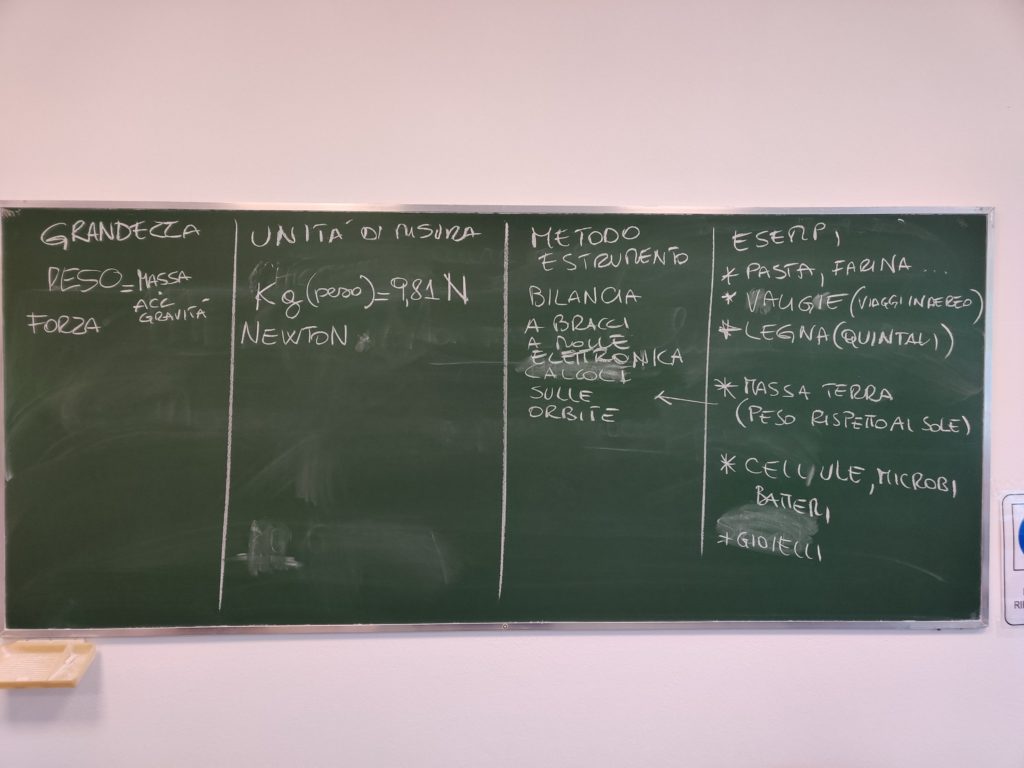 GRANDEZZA
PESO = MASSA
ACC
GRAVITÀ
FORZA
UNITÁ DI MISURA
Kg (peso) = 9,81 N
NEWTON
METODO
E STRUMENTO
BILANCIA
A BRACCI
A MOLLE
ELETTRONICA
CALCOLI
SULLE
ORBITE
ESEMPI
* PASTA, FARINA ...
* VALIGIE (VIAGGI IN AEREO)
* LEGNA (QUINTALI)
* MASSA TERRA
(PESO RISPETTO AL SOLE)
* CELLULE, MICROBI
BATTERI
* GIOIELLI